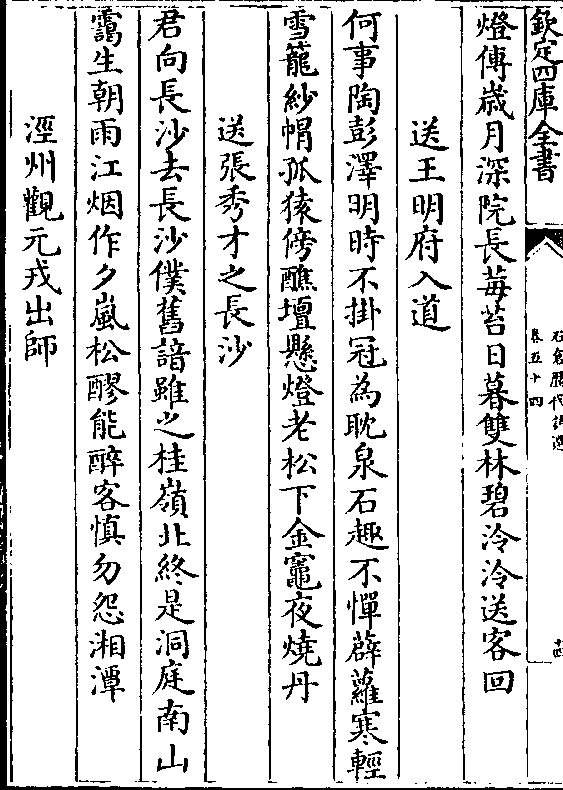 欽定四庫全書
石倉歷代詩選
卷五十四
十四
燈傳歳月深院長莓苔日暮雙林碧泠泠送客回
送王明府入道
何事陶彭澤明時不掛冠為耽泉石趣不憚薜蘿寒輕
雪籠紗㡌孤猿傍醮壇懸燈老松下金竈夜燒丹
送張秀才之長沙
君向長沙去長沙僕舊諳雖之桂嶺北終是洞庭南山
靄生朝雨江烟作夕嵐松醪能醉客慎勿怨湘潭
涇州觀元戎出師